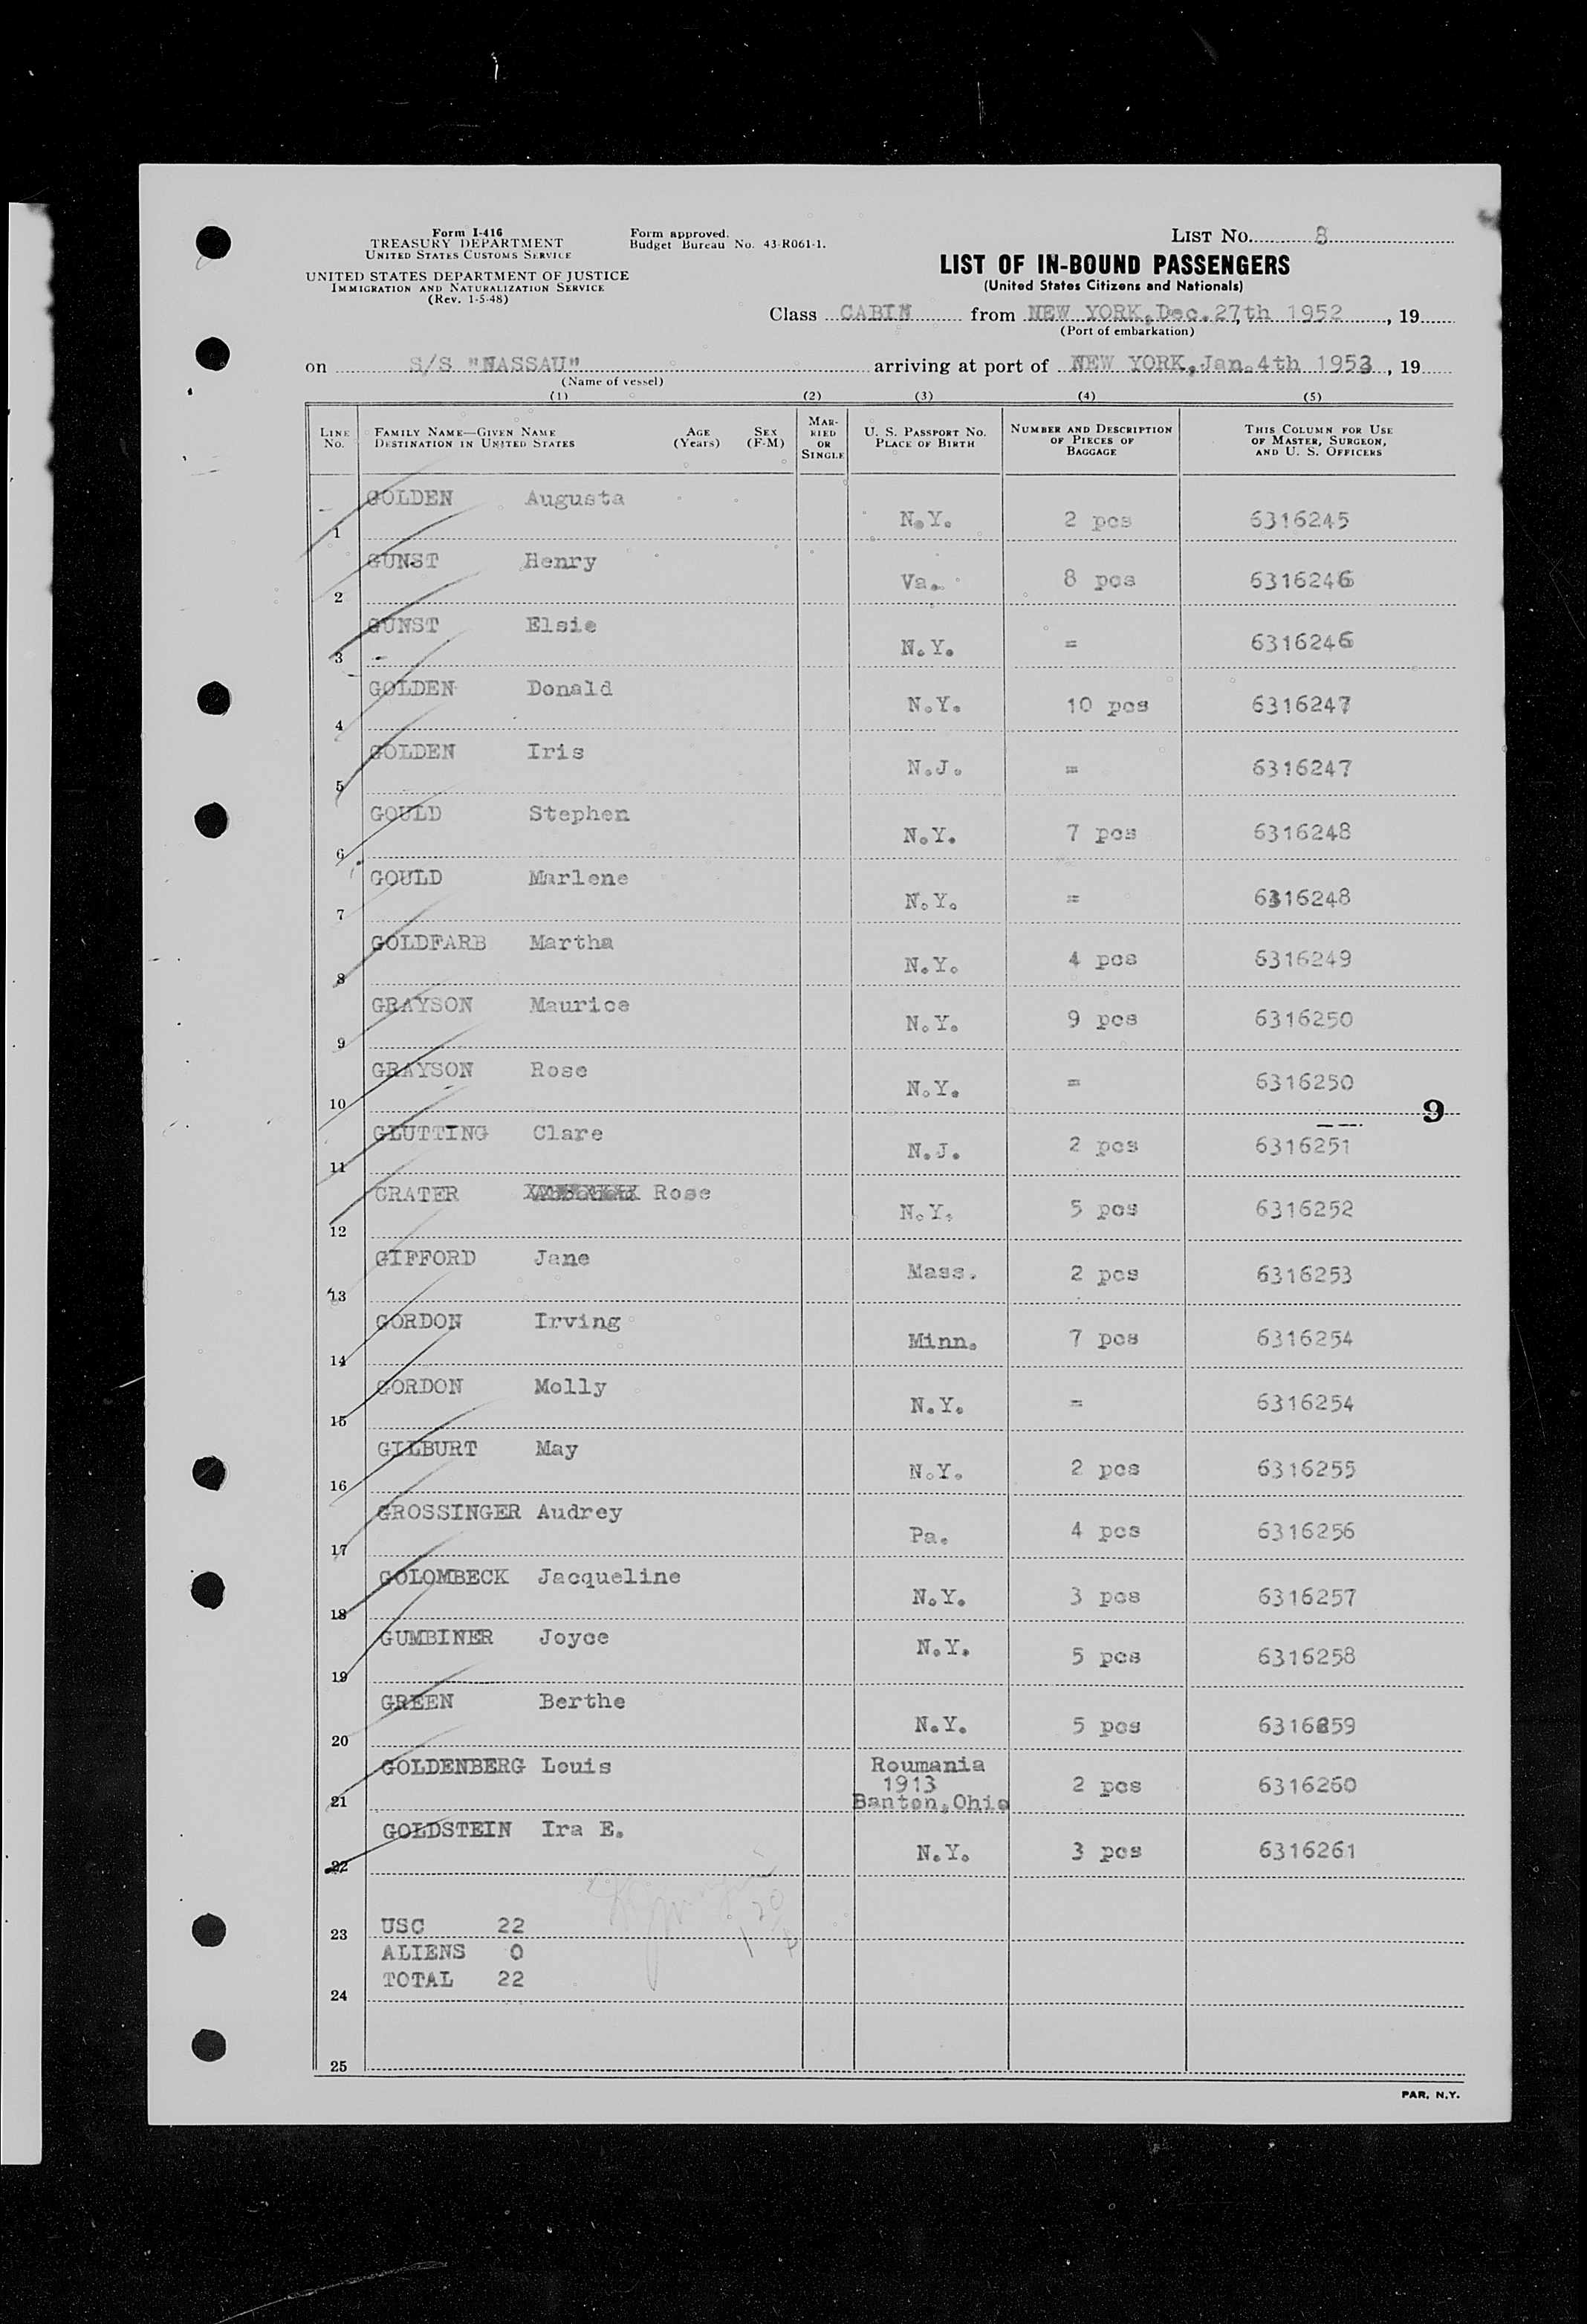 Form I-416
TREASURY DEPARTMENT
UNITED STATES CUSTOMS SERVICE
UNITED STATES DEPARTMENT OF JUSTICE
IMMIGRATION AND NATURALIZATION SERVICE
(Rev. 1-5-48)
Form approved.
Budget Bureau No. 43-R061-1.
LIST No. 8
LIST OF IN-BOUND PASSENGERS
(United States Citizens and Nationals)
Class CABIN from NEW YORK, Dec. 27, th 1952, 19
(Port of embarkation)
on S/S "NASSAU" arriving at port of NEW YORK, Jan. 4th 1953, 19
(Name of vessel)
(1) (2) (3) (4) (5)
LINE No. FAMILY NAME—GIVEN NAME DESTINATION IN UNITED STATES AGE (Years) SEX (F-M) MARRIED OR SINGLE U. S. PASSPORT No. PLACE OF BIRTH NUMBER AND DESCRIPTION OF PIECES OF BAGGAGE THIS COLUMN FOR USE OF MASTER, SURGEON, AND U. S. OFFICERS
1 GOLDEN Augusta N.Y. 2 pcs 6316245
2 GUNST Henry Va. 8 pcs 6316246
3 GUNST Elsie N.Y. = 6316246
4 GOLDEN Donald N.Y. 10 pcs 6316247
5 GOLDEN Iris N.J. = 6316247
6 GOULD Stephen N.Y. 7 pcs 6316248
7 GOULD Marlene N.Y. = 6316248
8 GOLDFARB Martha N.Y. 4 pcs 6316249
9 GRAYSON Maurice N.Y. 9 pcs 6316250
10 GRAYSON Rose N.Y. = 6316250
9
11 GLUTTING Clare N.J. 2 pcs 6316251
12 GRATER Rose N.Y. 5 pcs 6316252
13 GIFFORD Jane Mass. 2 pcs 6316253
14 GORDON Irving Minn. 7 pcs 6316254
15 GORDON Molly N.Y. = 6316254
16 GILBURT May N.Y. 2 pcs 6316255
17 GROSSINGER Audrey Pa. 4 pcs 6316256
18 GOLOMBECK Jacqueline N.Y. 3 pcs 6316257
19 GUMBINER Joyce N.Y. 5 pcs 6316258
20 GREEN Berthe N.Y. 5 pcs 6316259
21 GOLDENBERG Louis Roumania 1913 Banton, Ohio 2 pcs 6316260
22 GOLDSTEIN Ira E. N.Y. 3 pcs 6316261
23 USC 22
ALIENS 0
TOTAL 22
24
25
PAR. N.Y.